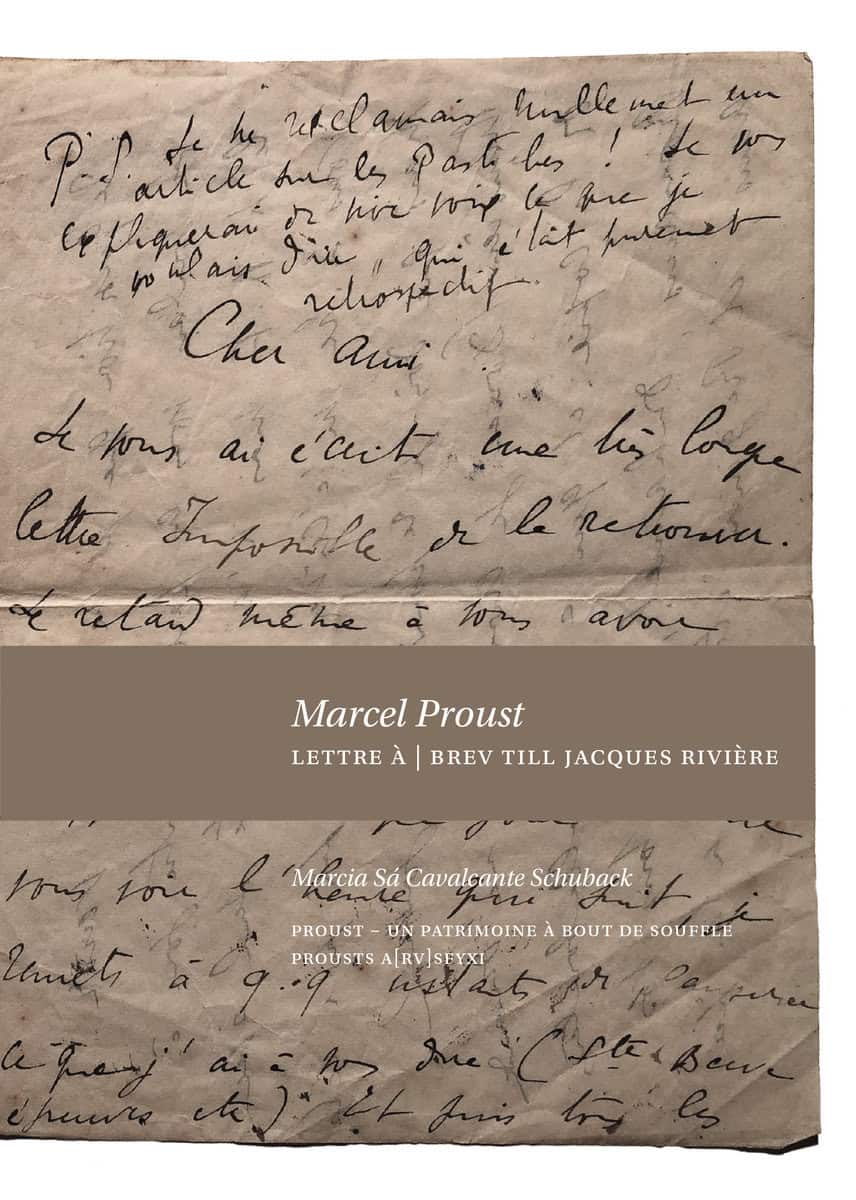 P.S. Je ne réclamais nullement un
article sur les Pastiches ! Je vous
expliquerai de vive voix ce que je
voulais dire, qui était purement
rétrospectif.
Cher ami
Je vous ai écrit une très longue
lettre Impossible de la retrouver.
Le retard même à vous avoir
Marcel Proust
LETTRE À | BREV TILL JACQUES RIVIÈRE
vous voir l'heure qui suit, je
Marcia Sá Cavalcante Schuback
PROUST – UN PATRIMOINE À BOUT DE SOUFFLE
PROUSTS A[RV]SFYXI
remets à q.q. instants de
ce que j'ai à vous dire (Ste Beuve
épreuves etc) Et puis tous les